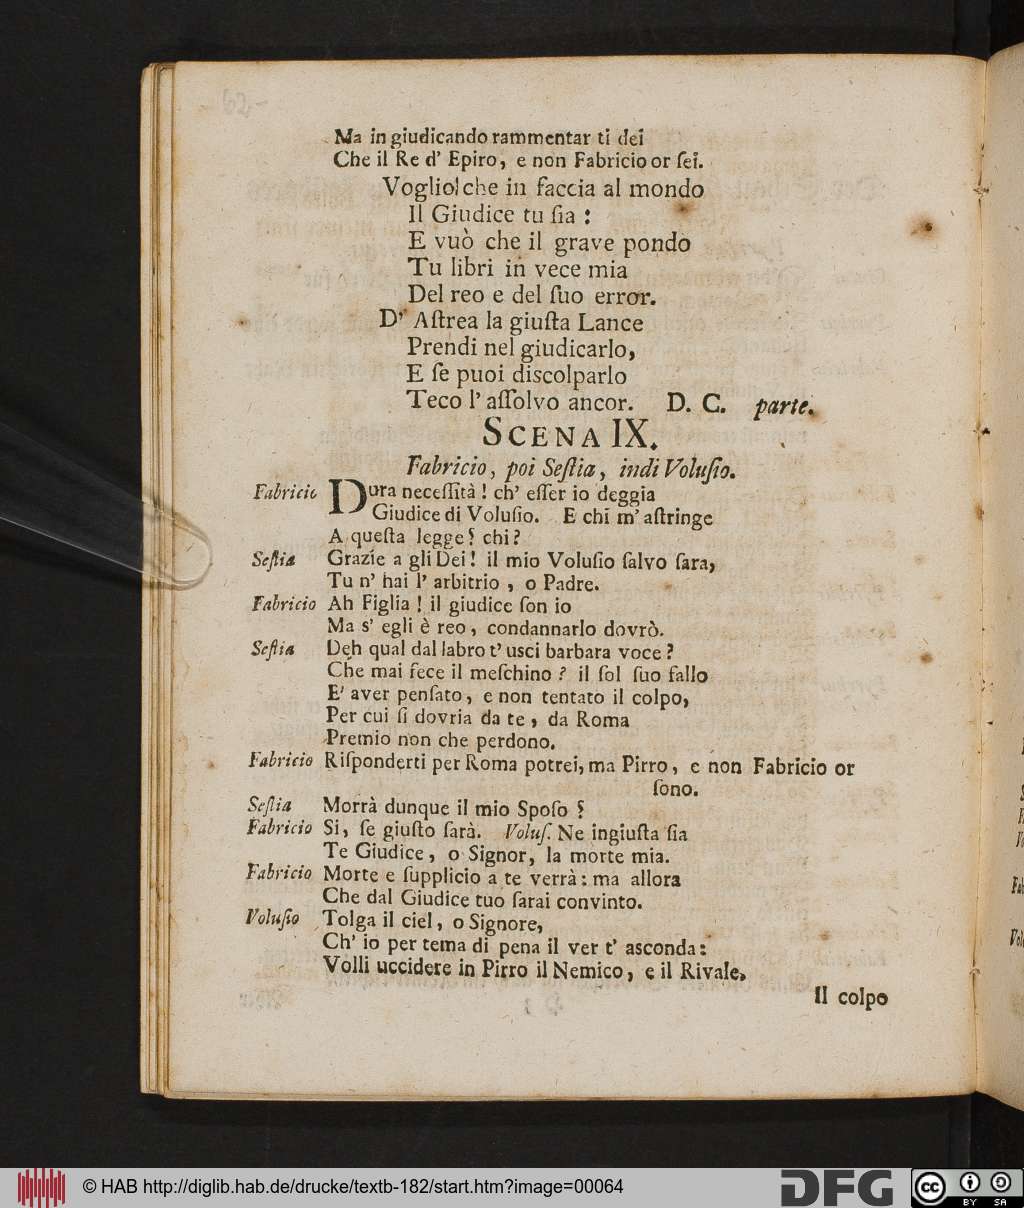 62
Ma in giudicando rammentar ti dei
Che il Re d' Epiro, e non Fabricio or ſei.
Voglio che in faccia al mondo
Il Giudice tu ſia :
E vuò che il grave pondo
Tu libri in vece mia
Del reo e del ſuo error.
D' Aſtrea la giuſta Lance
Prendi nel giudicarlo,
E ſe puoi diſcolparlo
Teco l' aſſolvo ancor. D. C. parte.
SCENA IX.
Fabricio, poi Seſtia, indi Voluſio.
Fabricio Dura neceſſità ! ch' eſſer io deggia
Giudice di Voluſio. E chi m' aſtringe
A queſta legge ? chi ?
Seſtia Grazie a gli Dei ! il mio Voluſio ſalvo ſara,
Tu n' hai l' arbitrio , o Padre.
Fabricio Ah Figlia ! il giudice ſon io
Ma s' egli è reo , condannarlo dovrò.
Seſtia Deh qual dal labro t' usci barbara voce ?
Che mai fece il meſchino ? il ſol ſuo fallo
E' aver penſato , e non tentato il colpo,
Per cui ſi dovria da te , da Roma
Premio non che perdono.
Fabricio Riſponderti per Roma potrei, ma Pirro , e non Fabricio or
ſono.
Seſtia Morrà dunque il mio Spoſo ?
Fabricio Si, ſe giuſto ſarà. Voluſ. Ne ingiuſta ſia
Te Giudice , o Signor, la morte mia.
Fabricio Morte e ſupplicio a te verrà : ma allora
Che dal Giudice tuo ſarai convinto.
Voluſio Tolga il ciel , o Signore,
Ch' io per tema di pena il ver t' asconda :
Volli uccidere in Pirro il Nemico, e il Rivale.
Il colpo
© HAB http://diglib.hab.de/drucke/textb-182/start.htm?image=00064
DFG
cc BY SA